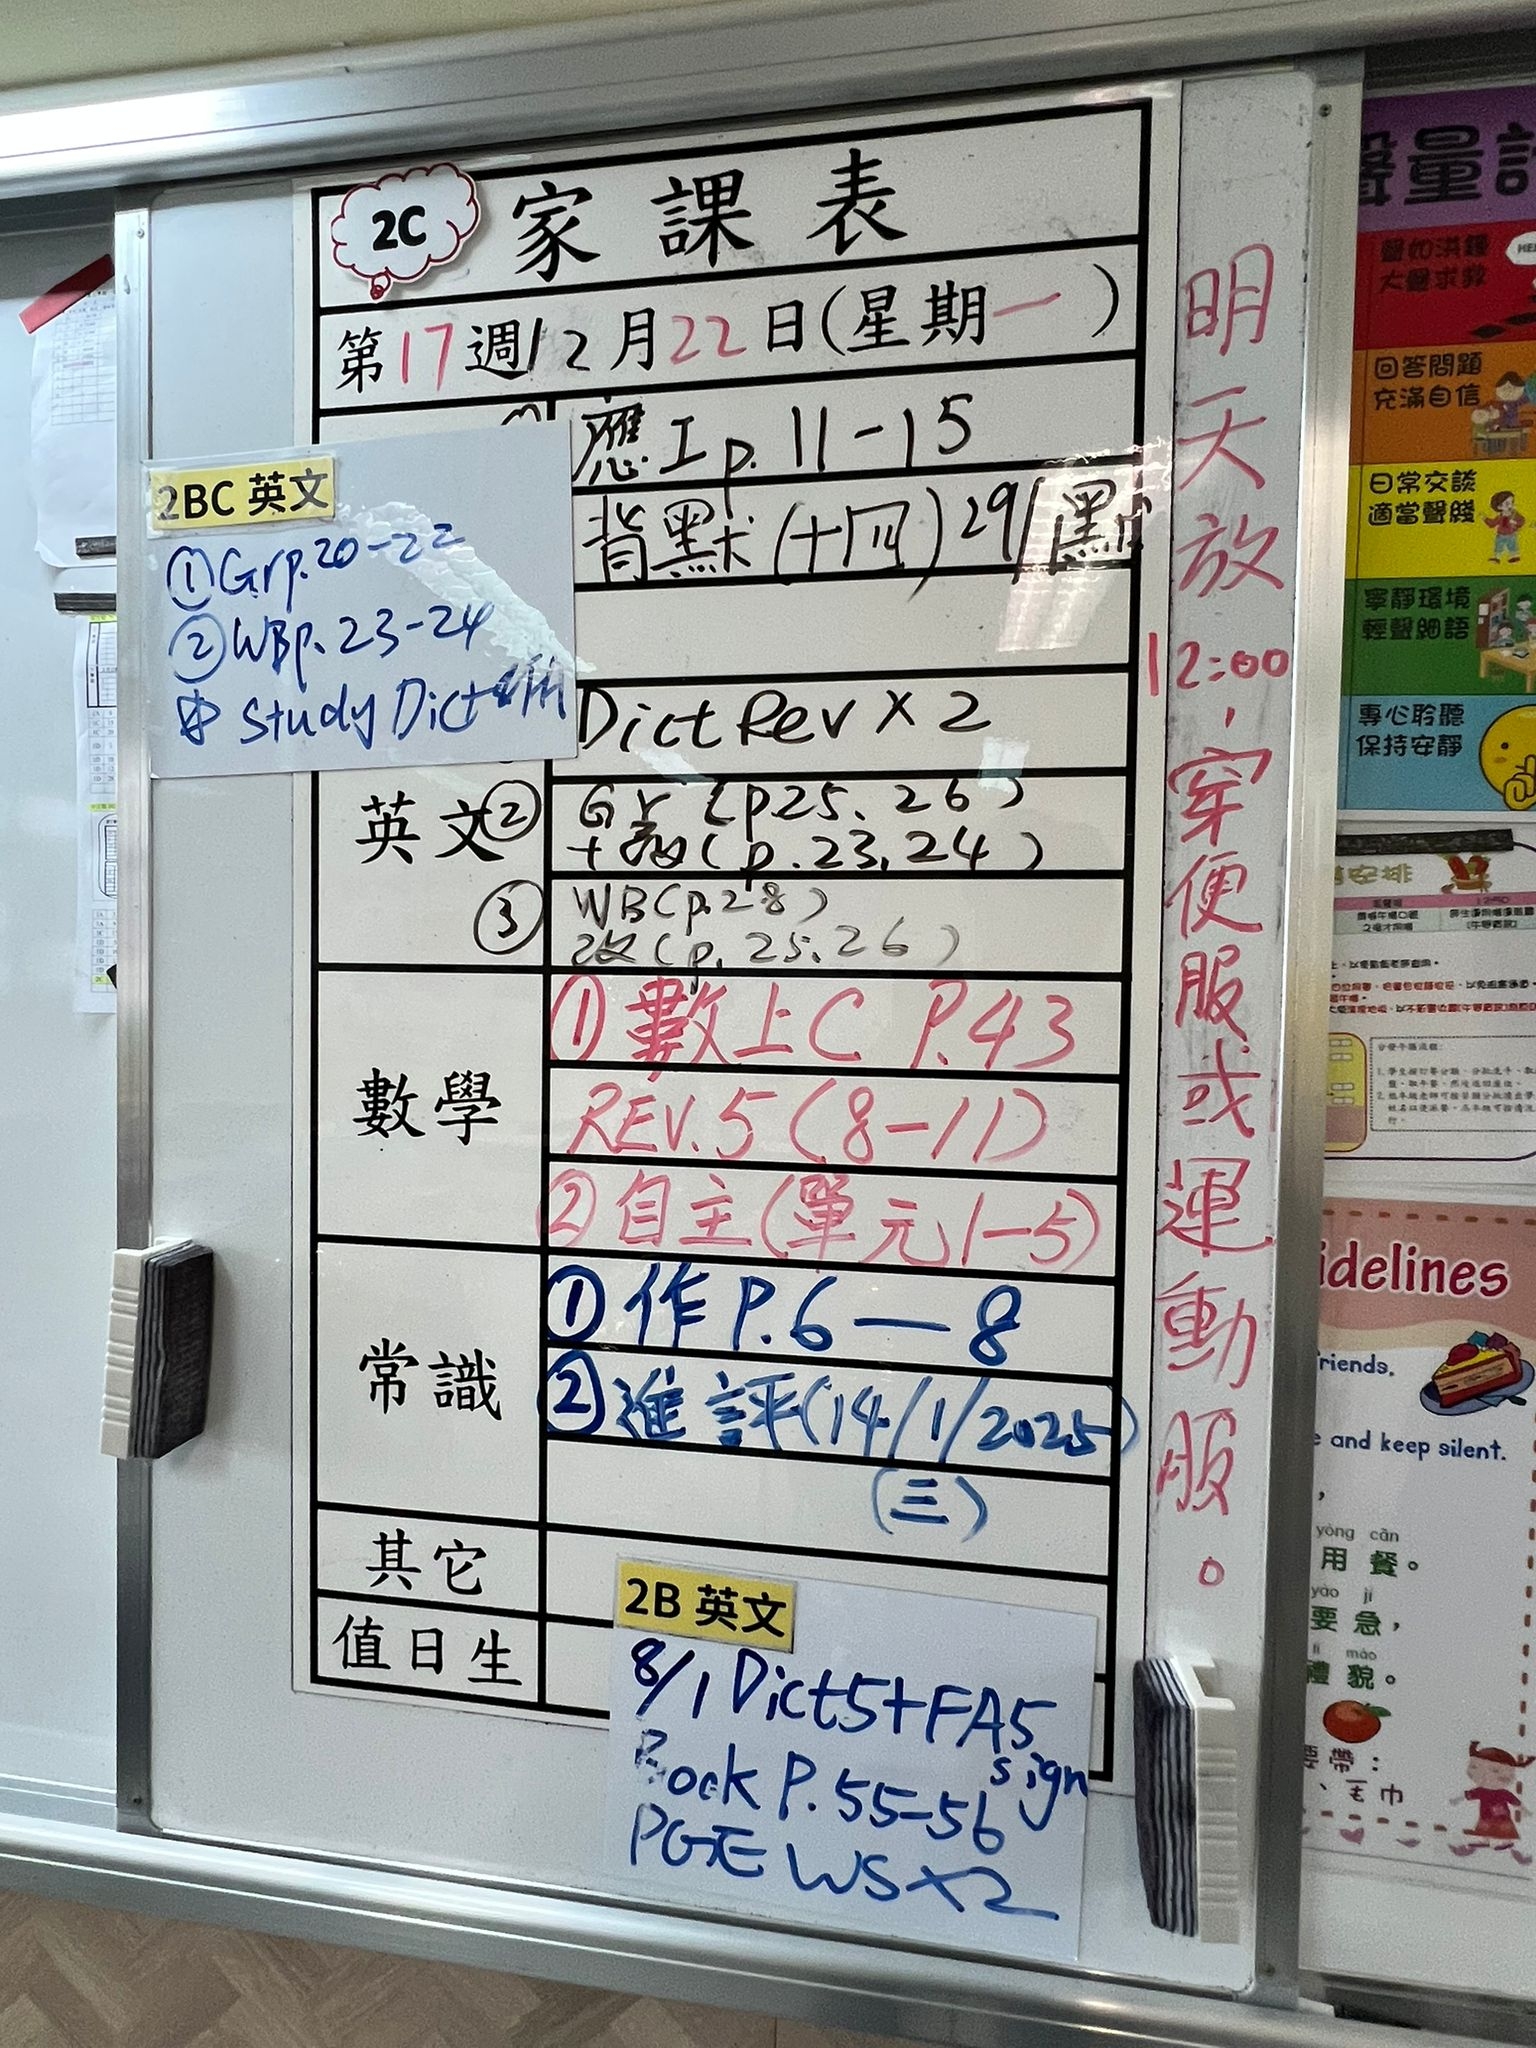 2C
家課表
第17週12月22日(星期一)
應工p.11-15
背默(十四)29/1默
2BC 英文
①Grp.20-22
②WBp.23-24
Study Dict
Dict Rev x 2
英文
②
Gr (p.25、26)
+改(p.23,24)
③
WB(p.28)
改(p.25、26)
數學
①數上C P.43
REV.5(8-11)
②自主(單元1-5)
常識
①作P.6—8
②進評(14/1/2025)
(三)
其它
值日生
2B 英文
8/1 Dict5+FA5
sign
Book P.55-56
PGE WS×2
明天放12:00，穿便服或運動服。
聲量
聲如洪鐘
大聲求救
回答問題
充滿自信
日常交談
適當聲綫
寧靜環境
輕聲細語
專心聆聽
保持安靜
安排
idelines
riends,
e and keep silent.
yòng cān
用餐。
yào jí
要急，
lǐ mào
禮貌。
要帶：
、毛巾